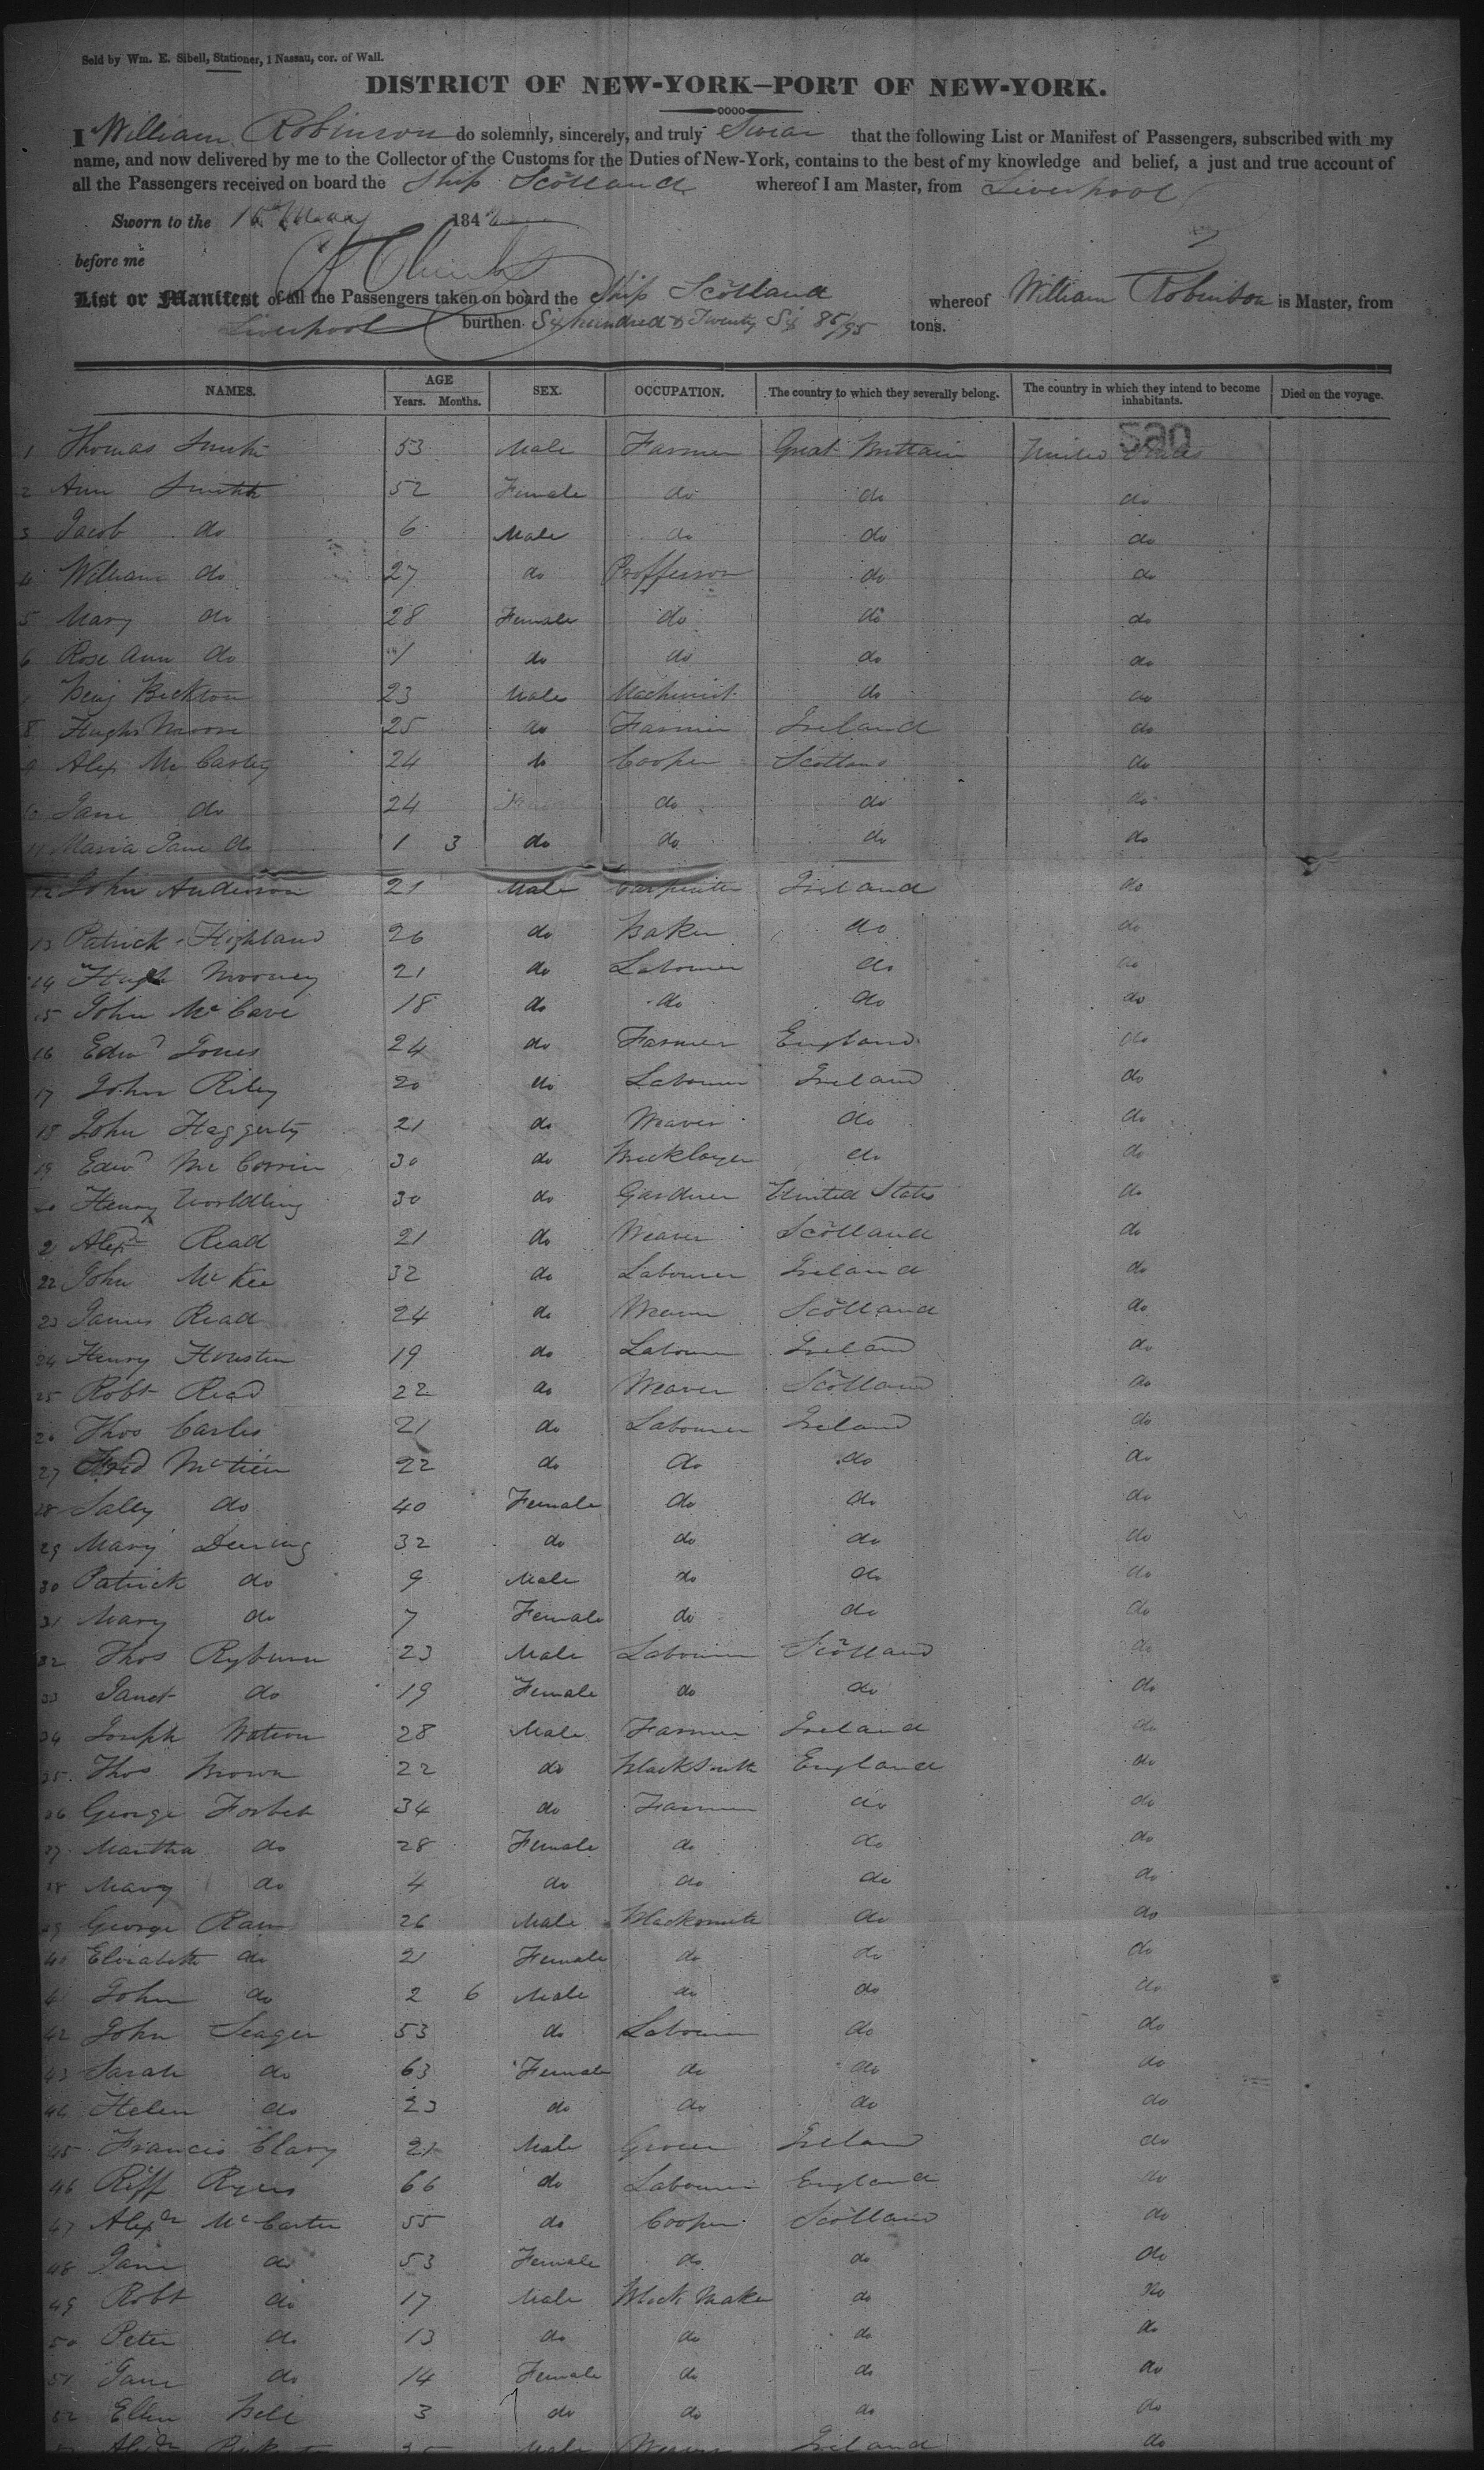 Sold by Wm. E. Sibell, Stationer, 1 Nassau, cor. of Wall.
DISTRICT OF NEW-YORK—PORT OF NEW-YORK.
I William Robinson do solemnly, sincerely, and truly Swear that the following List or Manifest of Passengers, subscribed with my
name, and now delivered by me to the Collector of the Customs for the Duties of New-York, contains to the best of my knowledge and belief, a just and true account of
all the Passengers received on board the Ship Scotland whereof I am Master, from Liverpool
Sworn to the 16 May 1842
before me
List or Manifest of all the Passengers taken on board the Ship Scotland whereof William Robinson is Master, from
Liverpool burthen Six hundred & Twenty Six 85/95 tons.
NAMES. AGE Years. Months. SEX. OCCUPATION. The country to which they severally belong. The country in which they intend to become inhabitants. Died on the voyage.
520
1 Thomas Smith 53 Male Farmer Great Brittain United States
2 Ann Smith 52 Female do do do
3 Jacob do 6 Male do do do
4 William do 27 do Professor do do
5 Mary do 28 Female do do do
6 Rose Ann do 1 do do do do
Benj Beckton 23 Male Machinist do do
8 Hugh Moore 25 do Farmer Ireland do
9 Alex Mc Carley 24 do Cooper Scotland do
10 Jane do 24 do do do
11 Maria Jane do 1 3 do do do do
12 John Anderson 21 Male Carpenter Ireland do
13 Patrick Highland 26 do Baker do do
14 Hugh Mooney 21 do Labourer do do
15 John McCave 18 do do do do
16 Edwd Jones 24 do Farmer England do
17 John Riley 20 do Labourer Ireland do
18 John Haggerty 21 do Weaver do do
19 Edwd Mc Corrin 30 do Bricklayer do do
20 Henry Worldling 30 do Gardner United States do
21 Alexr Read 21 do Weaver Scotland do
22 John McKee 32 do Labourer Ireland do
23 James Read 24 do Weaver Scotland do
24 Henry Houston 19 do Labourer Ireland do
25 Robt Read 22 do Weaver Scotland do
26 Thos Carlis 21 do Labourer Ireland do
27 22 do do do do
28 Sally do 40 Female do do do
29 Mary Deering 32 do do do do
30 Patrick do 9 Male do do do
31 Mary do 7 Female do do do
32 Thos Ryburn 23 Male Labourer Scotland do
33 Janet do 19 Female do do do
34 Joseph Watson 28 Male Farmer Ireland do
35 Thos Brown 22 do Blacksmith England do
36 George Forbet 34 do Farmer do do
37 Martha do 28 Female do do do
38 Mary do 4 do do do do
39 George Raw 26 Male Blacksmith do do
40 Elizabeth do 21 Female do do do
41 John do 2 6 Male do do do
42 John Seager 53 do Labourer do do
43 Sarah do 63 Female do do do
44 Helen do 23 do do do do
45 Francis Clary 21 Male Grocer Ireland do
46 Riff Ryers 66 do Labourer England do
47 Alexdr McCarter 55 do Cooper Scotland do
48 Jane do 53 Female do do do
49 Robt do 17 Male Block Maker do do
50 Peter do 13 do do do do
51 Jane do 14 Female do do do
52 Ellen Bell 3 do do do do
Alexdr 35 Male Weaver Ireland do